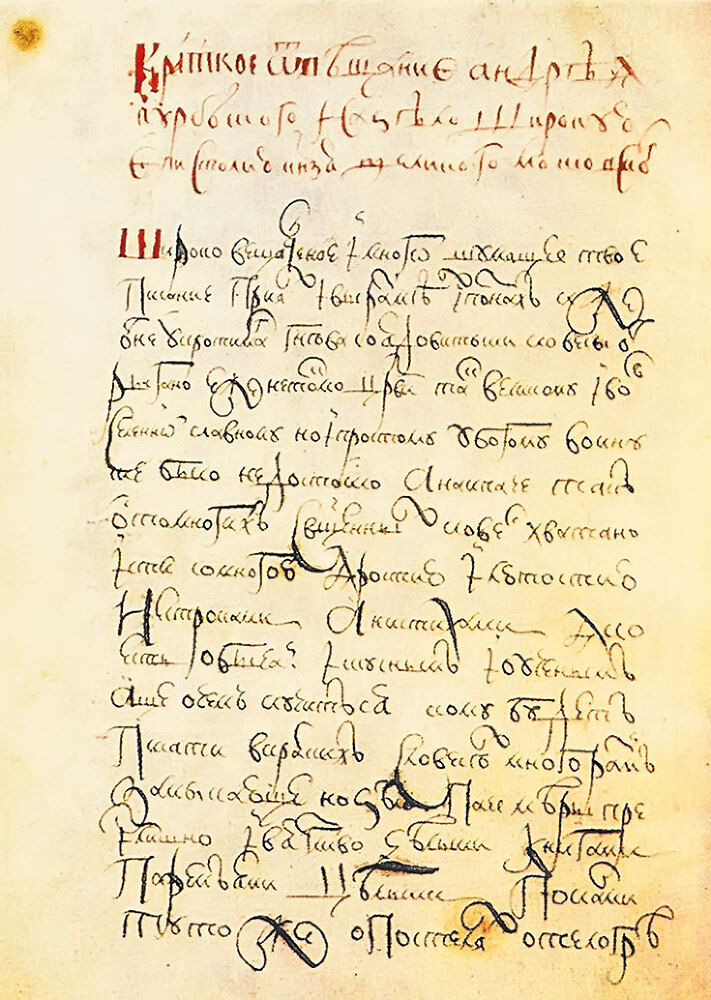 Краткое ѿвѣщание андрѣя
курбского на зѣло широкую
епистолию кнзя великого московско
Широковещателное і многошумящее твое
писание приях і выразумѣх і познахъ иже
ѿ неукротима гнѣва со ядовитыми словесы ѿ
рыгано еже нетокмо цреви так великому і во
вселенной славному но і простому убогому воину
сие было недостойно а наипаче такъ
ото многихъ священных словес хватано
і те со многою яростию і лютостию
ни строками а ни стихами яко
есть обычай искуснымъ і ученымъ
аще о чемъ случитъся кому будетъ
писати вкраткихъ словесехъ многоразумъ
замыкающе но зѣло паче мѣры пре
излишно і звягливо цѣлыми книгами
паремьями цѣлыми посланми
туто же о постелях о телогрѣ